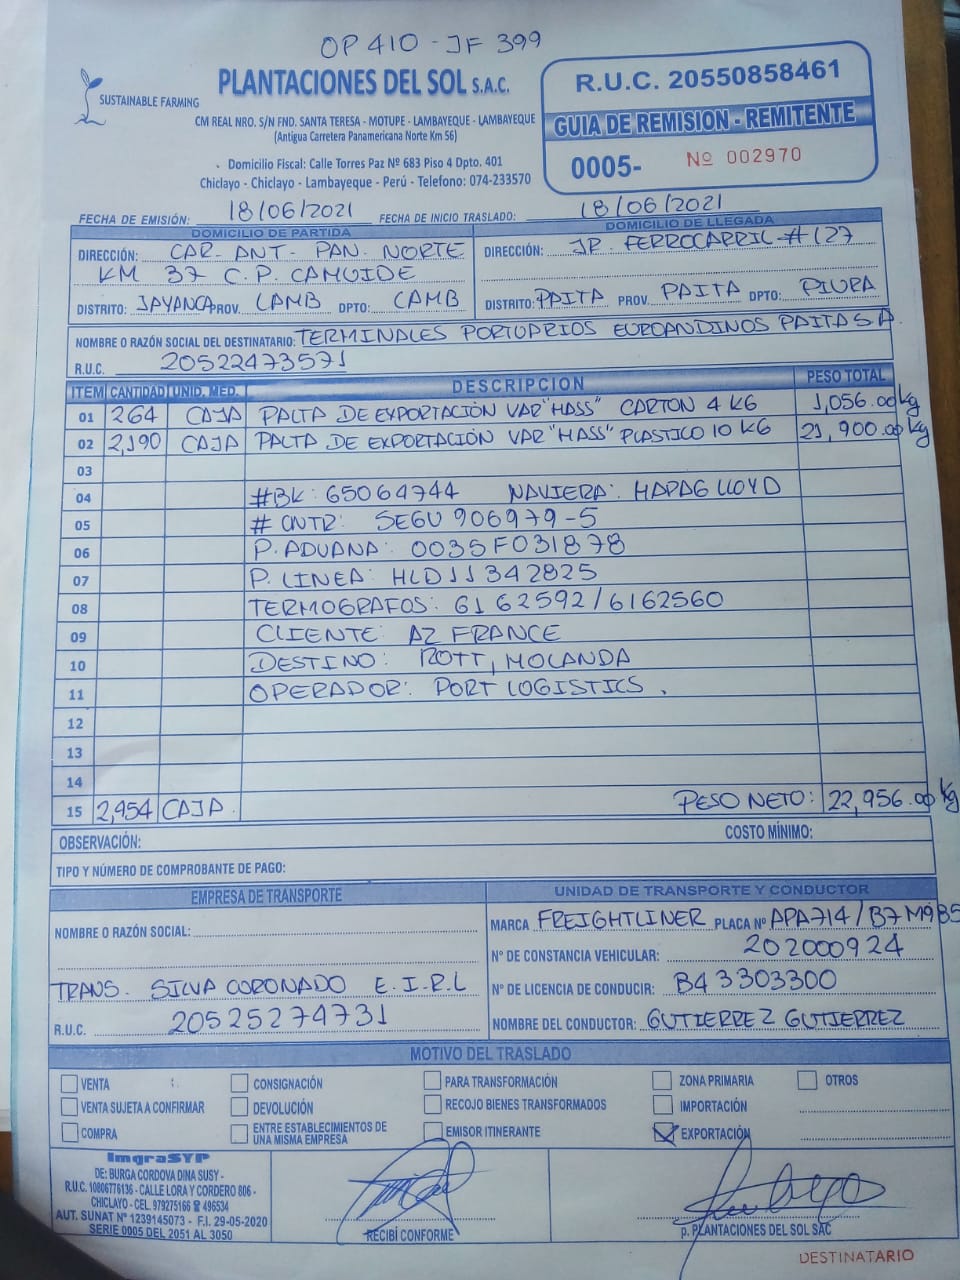 OP 410 - JF 399
SUSTAINABLE FARMING
PLANTACIONES DEL SOL S.A.C.
CM REAL NRO. S/N FND. SANTA TERESA - MOTUPE - LAMBAYEQUE - LAMBAYEQUE
(Antigua Carretera Panamericana Norte Km 56)
Domicilio Fiscal: Calle Torres Paz Nº 683 Piso 4 Dpto. 401
Chiclayo - Chiclayo - Lambayeque - Perú - Telefono: 074-233570
R.U.C. 20550858461
GUIA DE REMISION - REMITENTE
0005- Nº 002970
FECHA DE EMISIÓN: 18/06/2021 FECHA DE INICIO TRASLADO: 18/06/2021
DOMICILIO DE PARTIDA
DIRECCIÓN: CAR. ANT. PAN. NORTE
KM 37 C.P. CAMUIDE
DISTRITO: JAYANCA PROV. LAMB DPTO: LAMB
DOMICILIO DE LLEGADA
DIRECCIÓN: JR. FERROCARRIL #127
DISTRITO: PAITA PROV. PAITA DPTO: PIURA
NOMBRE O RAZÓN SOCIAL DEL DESTINATARIO: TERMINALES PORTUARIOS EUROANDINOS PAITA S.A.
R.U.C. 20522473571
ITEM CANTIDAD UNID. MED. DESCRIPCION PESO TOTAL
01 264 CAJA PALTA DE EXPORTACIÓN VAR "HASS" CARTON 4 KG 1,056.00 kg
02 2,190 CAJA PALTA DE EXPORTACIÓN VAR "HASS" PLASTICO 10 KG 21,900.00 kg
03
04 #BK: 65064744 NAVIERA: HAPAG LLOYD
05 # CNTR: SEGU 906979-5
06 P. ADUANA: 0035F031878
07 P. LINEA: HLD11342825
08 TERMOGRAFOS: 6162592/6162560
09 CLIENTE: AZ FRANCE
10 DESTINO: ROTT, HOLANDA
11 OPERADOR: PORT LOGISTICS.
12
13
14
15 2,454 CAJA. PESO NETO: 22,956.00 kg
OBSERVACIÓN: COSTO MÍNIMO:
TIPO Y NÚMERO DE COMPROBANTE DE PAGO:
EMPRESA DE TRANSPORTE
NOMBRE O RAZÓN SOCIAL:
TRANS. SILVA CORONADO E.I.R.L
R.U.C. 20525274731
UNIDAD DE TRANSPORTE Y CONDUCTOR
MARCA FREIGHTLINER PLACA Nº APA714/B7M985
N° DE CONSTANCIA VEHICULAR: 202000924
N° DE LICENCIA DE CONDUCIR: B43303300
NOMBRE DEL CONDUCTOR: GUTIERREZ GUTIERREZ
MOTIVO DEL TRASLADO
VENTA CONSIGNACIÓN PARA TRANSFORMACIÓN ZONA PRIMARIA OTROS
VENTA SUJETA A CONFIRMAR DEVOLUCIÓN RECOJO BIENES TRANSFORMADOS IMPORTACIÓN
COMPRA ENTRE ESTABLECIMIENTOS DE UNA MISMA EMPRESA EMISOR ITINERANTE EXPORTACIÓN
ImgraSYP
DE: BURGA CORDOVA DINA SUSY -
R.U.C. 10806776136 - CALLE LORA Y CORDERO 806 -
CHICLAYO - CEL. 979275166 ☎ 496534
AUT. SUNAT N° 1239145073 - F.I. 29-05-2020
SERIE 0005 DEL 2051 AL 3050
RECIBÍ CONFORME
p. PLANTACIONES DEL SOL SAC
DESTINATARIO